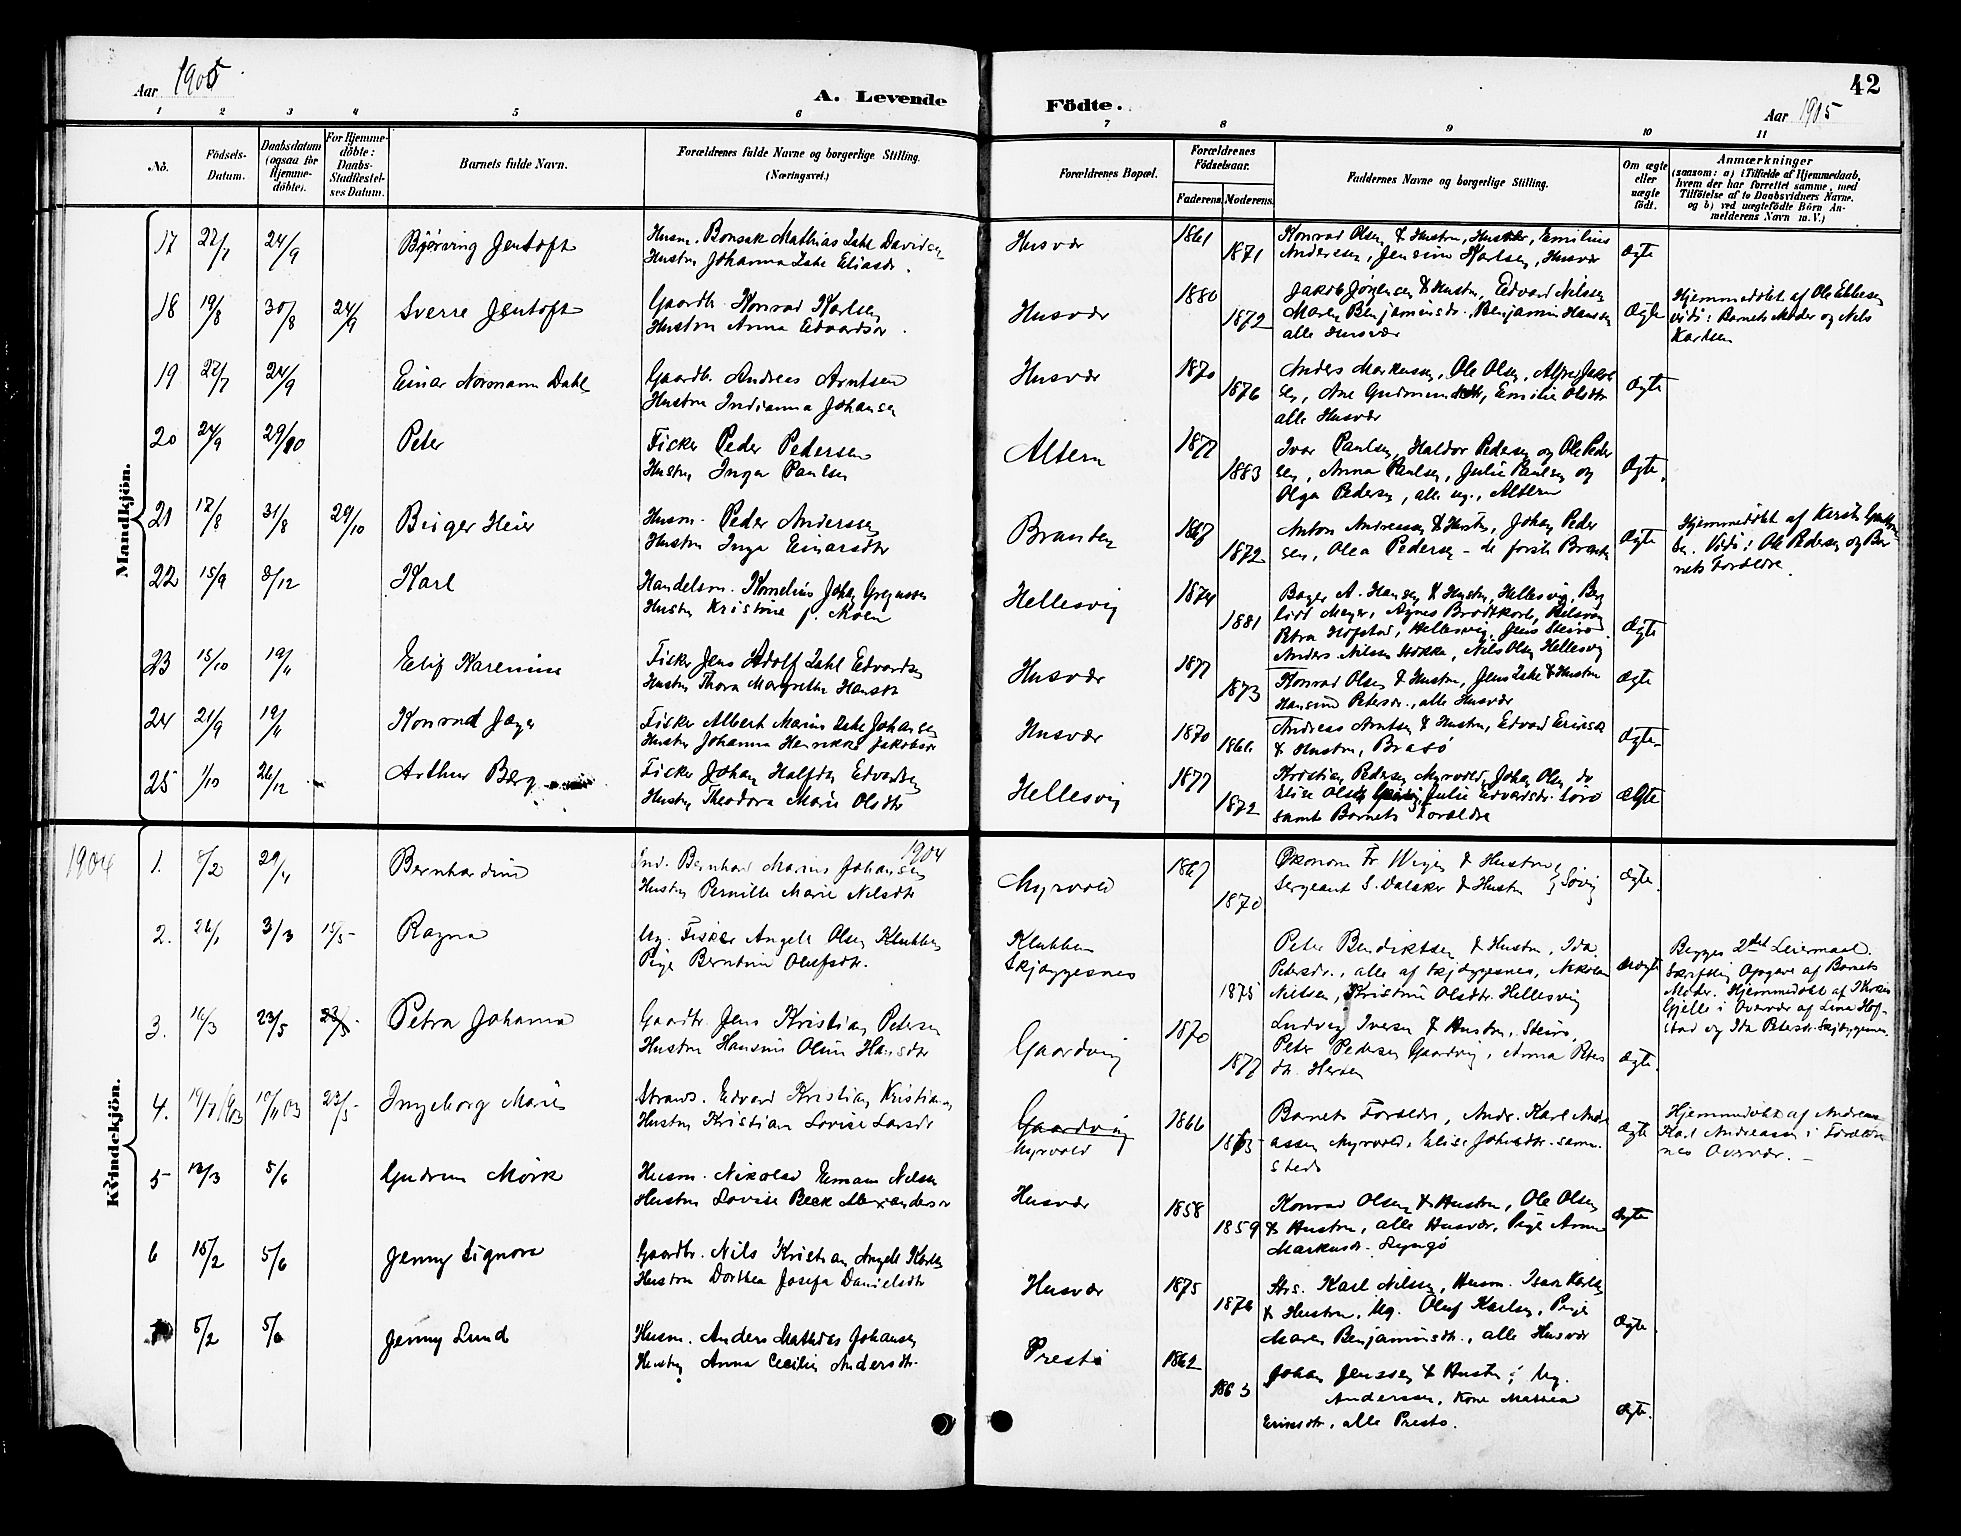 Aar 1905
A. Levende
Födte.
42
Aar 1905
1 2 3 4 5 6 7 8 9 10 11
No.
Födsels-
Datum.
Daabsdatum
(ogsaa for
Hjemme-
döbte).
For Hjemme-
döbte:
Daabs-
Stadfæstel-
ses Datum.
Barnets fulde Navn.
Forældrenes fulde Navne og borgerlige Stilling.
(Næringsvei.)
Forældrenes Bopæl.
Forældrenes
Födselsaar.
Faderens. Moderens.
Faddernes Navne og borgerlige Stilling.
Om ægte
eller
uægte
født.
Anmærkninger
(saasom: a) i Tilfælde af Hjemmedaab,
hvem der har forrettet samme, med
Tilföielse af to Daabsvidners Navne,
og b) ved uægtefödte Börn An-
melderens Navn m. V.)
Mandkjön.
17 22/7 24/9
Bjørving Jentoft
Husm. Bonsak Mathias Zahl Davidsen
Hustru Johanna Zahl Eliasdr.
Husvær
1861
1871
Konrad Olsen & Hustru, Husvær, Emilius
Andersen, Jensine Karlsen, Husvær
ægte
18 19/8 30/8 24/9
Sverre Jentoft
Gaardbr. Konrad Karlsen
Hustru Anna Edvardsdr.
Husvær
1880
1872
Jakob Jørgensen & Hustru, Edvard Nilssen
Maren Benjaminsdr., Benjamin Hansen
alle Husvær
Ægte
Hjemmedøbt af Ole Ebbesen
Vidi: Barnets Moder og Nels
Karlsen
19 22/7 24/9
Einar Normann Dahl
Gaardb. Andreas Arntsen
Hustru Indianna Johansen
Husvær
1870
1876
Anders Markussen, Ole Olsen, Alfred Jakob
sen, Ane Gudmundsdtr, Emilie Olsdtr
alle Husvær
Ægte
20 24/9 29/10
Peter
Fisker Peder Pedersen
Hustru Inga Paulsen
Altern
1877
1883
Ivar Paulsen, Haldor Pedersen og Ole Peder
sen, Anna Paulsen, Julie Paulsen og
Olga Pedersen, alle ug., Altern
Ægte.
21 17/8 31/8 29/10
Birger Heier
Husm. Peder Anderssen
Hustru Inga Einarsdtr
Branten
1867
1872
Anton Andreassen & Hustru, Johan Peder
sen, Olea Pedersen
Ægte
Hjemmedøbt af
Vidi: Ole Pedersen og Bar
nets Forældre.
22 15/9 8/12
Karl
Handelsm. Kornelius Johan Gregussen
Hustru Kristine f. Moen
Hellesvig
1874
1881
Bager A. Hansen & Hustru, Hellesvig, Berg
liot Meyer, Agnes Brodtkorb, Belsvåg
Petra Hofstad, Hellesvig, Jens Steiro
Anders Nilssen Hökke, Nils Olsen Hellesvig
Ægte
23 15/10 19/11
Eilif Karenius
Fisker Jens Adolf Zahl Edvardsen
Hustru Thora Margrethe Hansdtr
Husvær
1877
1873
Konrad Olsen & Hustru, Jens Zahl & Hustru
Hansine Petersdr., alle Husvær
Ægte
24 21/9 19/11
Konrad Jæger
Fisker Albert Marius Zahl Johansen
Hustru Johanna Henrikke Jakobsdr
Husvær
1870
1866
Andreas Arntsen & Hustru, Edvard Ericsen
& Hustru, Brasö
Ægte
25 1/10 26/12
Arthur Berg
Fisker Johan Halfdan Edvardsen
Hustru Theodora Marie Olsdtr
Hellesvig
1877
1872
Kristian Pedersen Myrvold, Johan Olsen, do
Elise Olsen Julie Edvardsdr. Söro
samt Barnets Forældre
Ægte
Kvindekjön.
1904
1904
1. 5/2 29/4
Bernhardine
Ind. Bernhard Marius Johansen
Hustru Pernille Marie Nilsdtr
Myrvold
1867
1870
Økonom Fr Wigen & Hustru
Sergeant S. Dalsker & Hustru } Søvig
ægte.
2. 26/1 3/3 15/5
Ragna
Ug. Fisker Angell Olsen Klubben
Pige Berntine Olufsdtr.
Klubben
Skjæggesnes
1875
Peter Bendiktsen & Hustru, Ida
Petersdr., alle af Skjæggesnes, Nikolai
Nielsen, Kristine Olsdtr. Hellesvig
uægte
Begges 2det Leiermaal.
Skriftlig Opgave af Barnets
Moder. Hjemmedøbt af
Gjelle i Overvær af Lina Hof-
stad og Ida Petersdr. Skjæggesnes.
3. 16/3 23/5 23/5
Petra Johanna
Gaardbr. Jens Kristian Petersen
Hustru Hansine Oline Hansdtr
Gaardvig
1870
1877
Ludvig Iversen & Hustru, Steiro,
Peter Pedersen Gaardvig, Anna Peters
dtr. Hersen
ægte.
4. 19/7 1903 10/11 03 23/5
Ingeborg Marie
Strands. Edvard Kristian Kristiansen
Hustru Kristiane Lovise Larsdr
Gaardvig
Myrvold
1866
1863
Barnets Forældre, Andr. Karl Andre
assen Myrvold, Elise Johansdtr. samme
Sted
ægte
Hjemmedøbt af Andreas
Karl Andreassen i Forældre
nes Overvær. –
5 12/3 5/6
Gudrun Mörk
Husm. Nikolai Emann Nilsen
Hustru Lovise Beck Alexandersdr
Husvær
1858
1859
Konrad Olsen & Hustru, Ole Olsen
& Hustru, alle Husvær, Pige Anna
Markusdr. Lyngö
Ægte
6 15/2 5/6
Jenny Signora
Gaardbr. Nils Kristian Angell Karlsen
Hustru Dorthea Josefa Danielsdtr
Husvær
1875
1876
Karl Nilssen, Husm. Isak Karlsen
& Hustru, Ug. Oluf Karlsen, Pige
Maren Benjaminsdtr., alle Husvær
Ægte.
7 5/2 5/6
Jenny Lund
Husm. Anders Mathias Johansen
Hustru Anna Cecilie Andersdtr.
Prestö
1862
1863
Johan Jenssen & Hustru; Ug.
Anderssen, Kone Mathea
Ericsdtr, alle Prestö.
ægte.